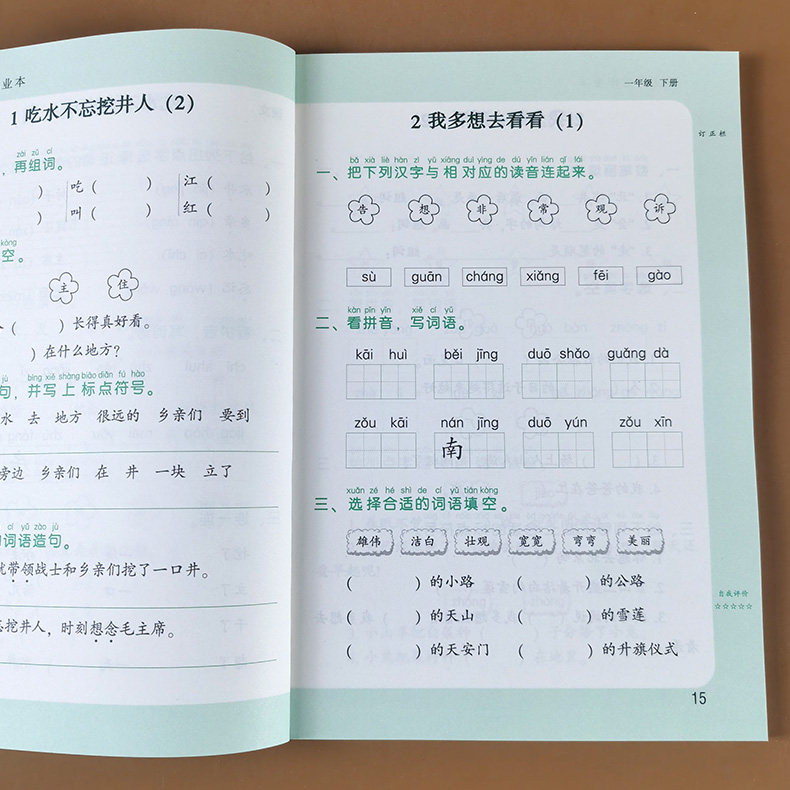 业本
1 吃水不忘挖井人（2）
zài zǔ cí
，再组词。
） 吃（ ） 江（ ）
） 叫（ ） 红（ ）
kòng
空。
主 住
（ ）长得真好看。
）在什么地方？
jù bìng xiě shàng biāo diǎn fú hào
句，并写上标点符号。
水 去 地方 很远的 乡亲们 要到
旁边 乡亲们 在 井 一块 立了
cí yǔ zào jù
词语造句。
就带领战士和乡亲们挖了一口井。
忘挖井人，时刻想念毛主席。
一年级 下册
2 我多想去看看（1）
订正栏
bǎ xià liè hàn zì yǔ xiāng duì yìng de dú yīn lián qǐ lái
一、把下列汉字与相对应的读音连起来。
告 想 非 常 观 诉
sù guān cháng xiǎng fēi gào
kàn pīn yīn xiě cí yǔ
二、看拼音，写词语。
kāi huì běi jīng duō shǎo guǎng dà
zǒu kāi nán jīng duō yún zǒu xīn
南
xuǎn zé hé shì de cí yǔ tián kòng
三、选择合适的词语填空。
雄伟 洁白 壮观 宽宽 弯弯 美丽
（ ）的小路 （ ）的公路
（ ）的天山 （ ）的雪莲
（ ）的天安门 （ ）的升旗仪式
自我评价
☆☆☆☆☆
15